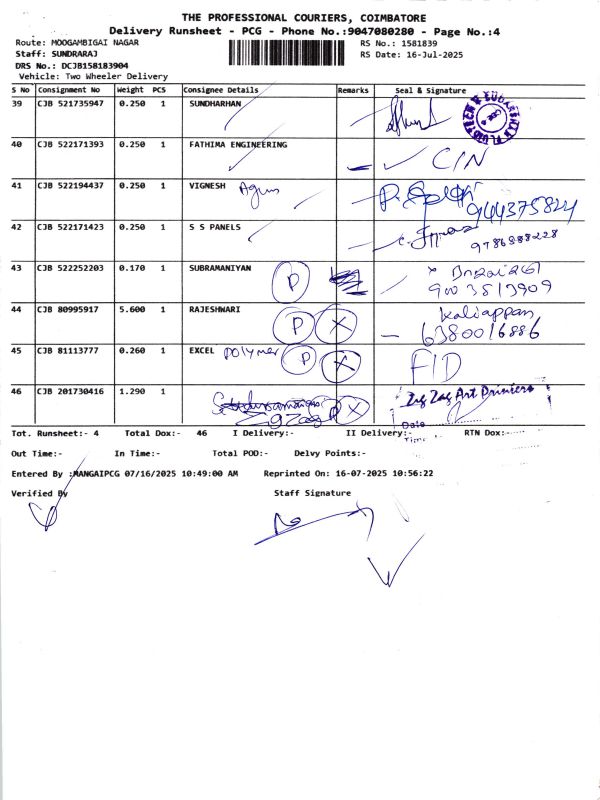 THE PROFESSIONAL COURIERS, COIMBATORE
Delivery Runsheet - PCG - Phone No.:9047080280 - Page No.:4
Route: MOOGAMBIGAI NAGAR RS No.: 1581839
Staff: SUNDRARAJ RS Date: 16-Jul-2025
DRS No.: DCJB158183904
Vehicle: Two Wheeler Delivery
S No Consignment No Weight PCS Consignee Details Remarks Seal & Signature
39 CJB 521735947 0.250 1 SUNDHARHAN
40 CJB 522171393 0.250 1 FATHIMA ENGINEERING C/N
41 CJB 522194437 0.250 1 VIGNESH
944375824
42 CJB 522171423 0.250 1 S S PANELS 9786888228
43 CJB 522252203 0.170 1 SUBRAMANIYAN P
9003513909
44 CJB 80995917 5.600 1 RAJESHWARI P X Kaliappan
6380016886
45 CJB 81113777 0.260 1 EXCEL polymer P X FID
46 CJB 201730416 1.290 1 Zig Zag P X Zig Zag Art Printers
Date
Time
Tot. Runsheet:- 4 Total Dox:- 46 I Delivery:- II Delivery:- RTN Dox:-
Out Time:- In Time:- Total POD:- Delvy Points:-
Entered By :MANGAIPCG 07/16/2025 10:49:00 AM Reprinted On: 16-07-2025 10:56:22
Verified By Staff Signature